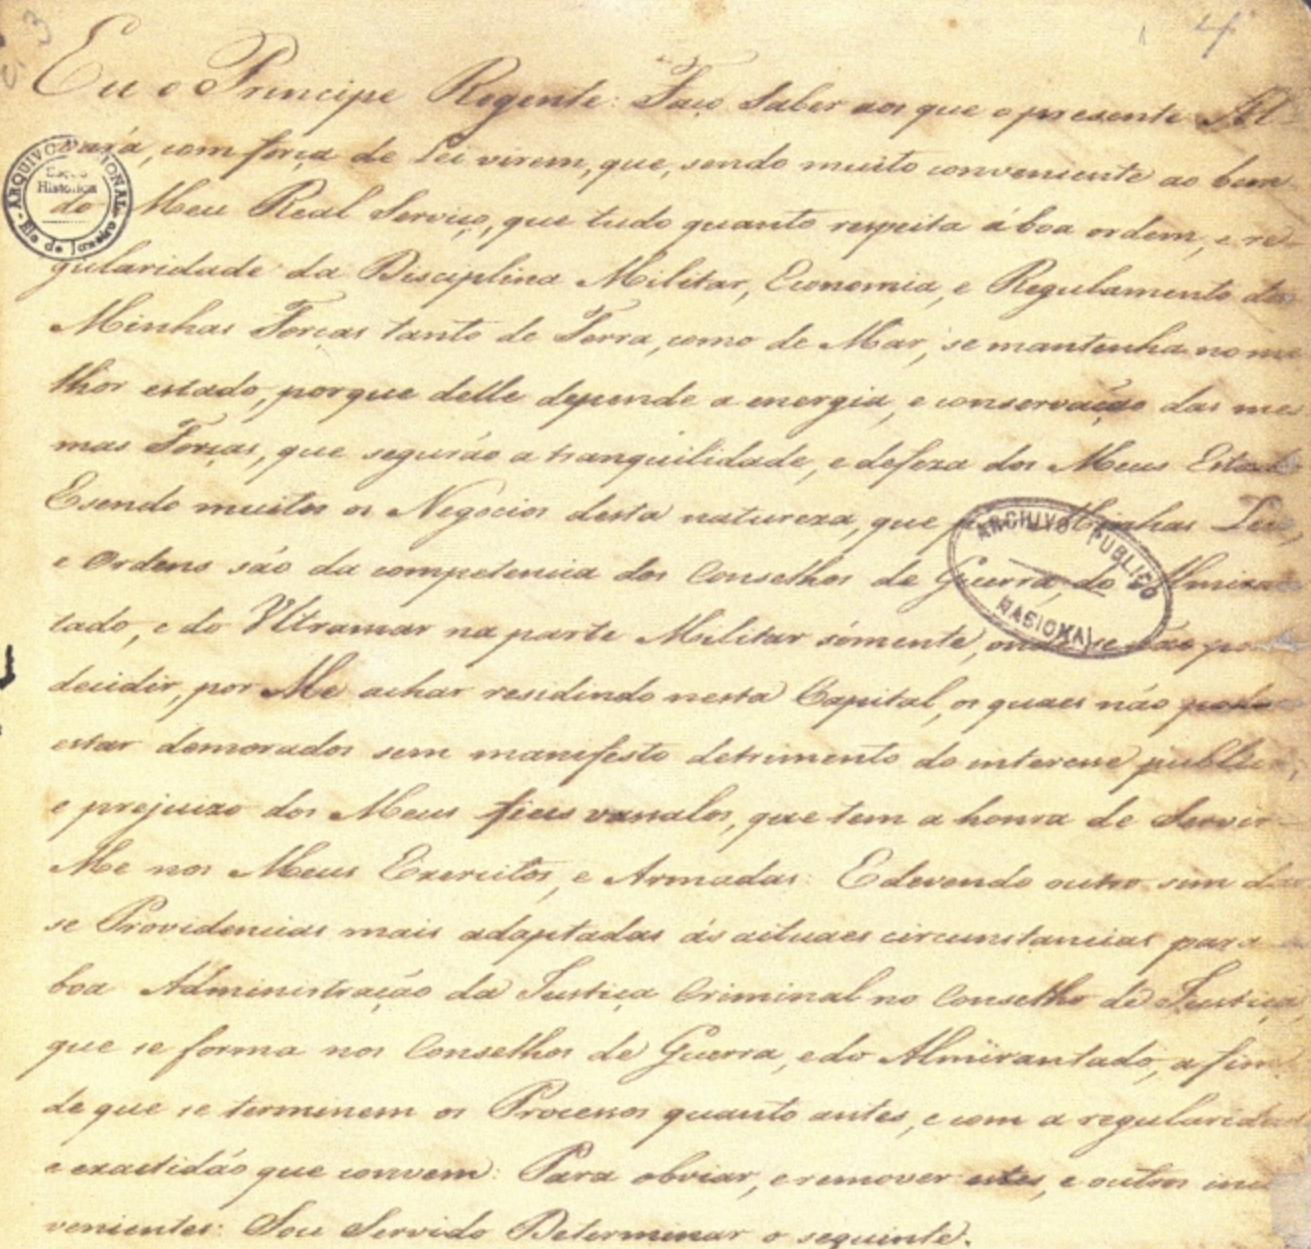 Eu o Principe Regente: Faço Saber aos que o presente Al-
vará, com força de Lei virem, que, sendo muito conveniente ao bem
do Meu Real Serviço, que tudo quanto respeita á boa ordem, e re-
gularidade da Disciplina Militar, Economia, e Regulamento das
Minhas Forças tanto de Terra, como de Mar, se mantenha no me
lhor estado, porque delle depende a energia, e conservação das mes
mas Forças, que segurão a tranquilidade, e defeza dos Meus Estad
E sendo muitos os Negocios desta natureza, que por Minhas Leis,
e Ordens são da competencia dos Conselhos de Guerra, do Almiran
tado, e do Ultramar na parte Militar sómente, se não po
decidir, por Me achar residindo nesta Capital, os quaes não pode
estar demorados sem manifesto detrimento do interesse publico,
e prejuizo dos Meus fieis vassalos, que tem a honra de Servir-
Me nos Meus Exercitos, e Armadas: E devendo outro sim dar
se Providencias mais adaptadas ás actuaes circumstancias para
boa Administração da Justiça Criminal no Conselho de Justiça,
que se forma nos Conselhos de Guerra, e do Almirantado, a fim
de que se terminem os Processos quanto antes, e com a regularidad
e exactidão que convem: Para obviar, e remover estes, e outros inc
venientes: Sou Servido Determinar o seguinte.
ARQUIVO NACIONAL
Secção
Historica
Rio de Janeiro
ARCHIVO PUBLICO
NACIONAL